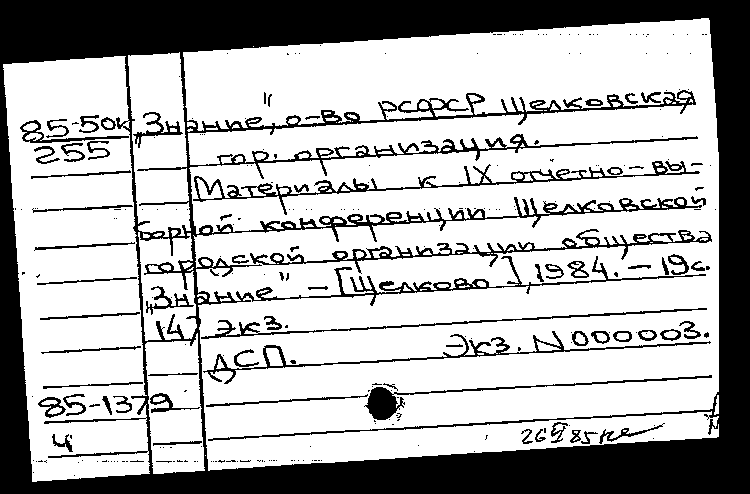 85-50к „Знание", о-во РСФСР. Щелковская
255 гор. организация.
Материалы к IX отчетно-вы-
борной конференции Щелковской
городской организации общества
„Знание" – [Щелково], 1984. – 19с.
147 экз.
ДСП. Экз. N 000003.
85-1379
ч